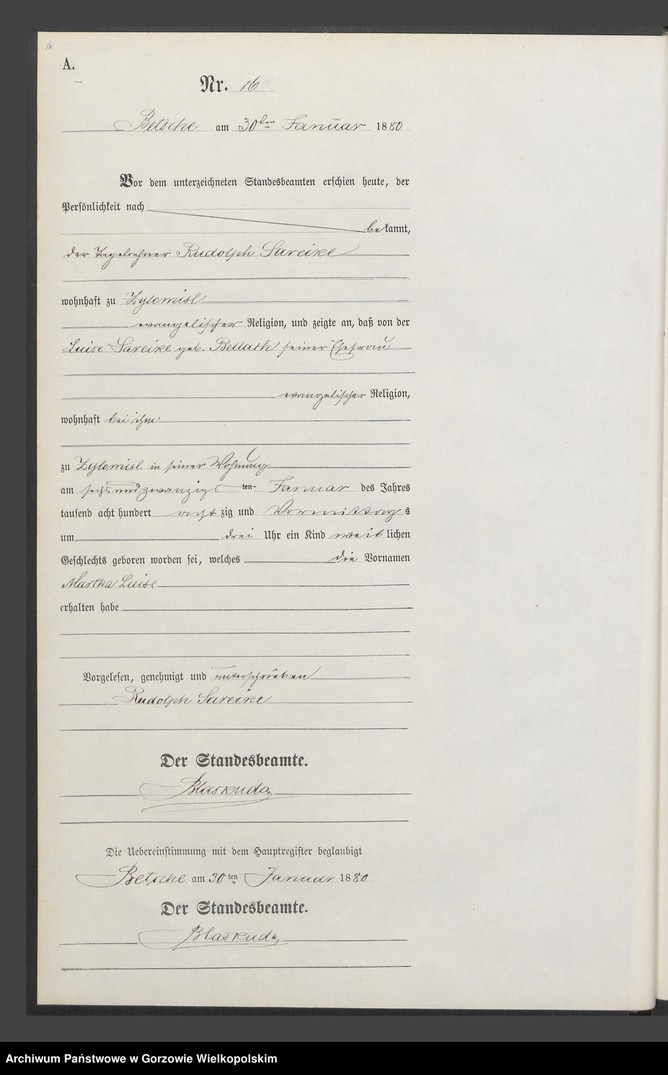 16
A.
Nr. 16
Betsche am 30ten Januar 1880
Vor dem unterzeichneten Standesbeamten erschien heute, der
Persönlichkeit nach
bekannt,
der Tagelöhner Rudolph Sareike
wohnhaft zu Zylomisl
evangelischer Religion, und zeigte an, daß von der
Luise Sareike geb. Bellach seiner Ehefrau
evangelischer Religion,
wohnhaft bei ihm
zu Zylomisl in seiner Wohnung
am sechsundzwanzigsten Januar des Jahres
tausend acht hundert achtzig und Vormittags
um drei Uhr ein Kind weiblichen
Geschlechts geboren worden sei, welches die Vornamen
Martha Luise
erhalten habe
Vorgelesen, genehmigt und unterschrieben
Rudolph Sareike
Der Standesbeamte.
Blaskuda
Die Uebereinstimmung mit dem Hauptregister beglaubigt
Betsche am 30ten Januar 1880
Der Standesbeamte.
Blaskuda
Archiwum Państwowe w Gorzowie Wielkopolskim